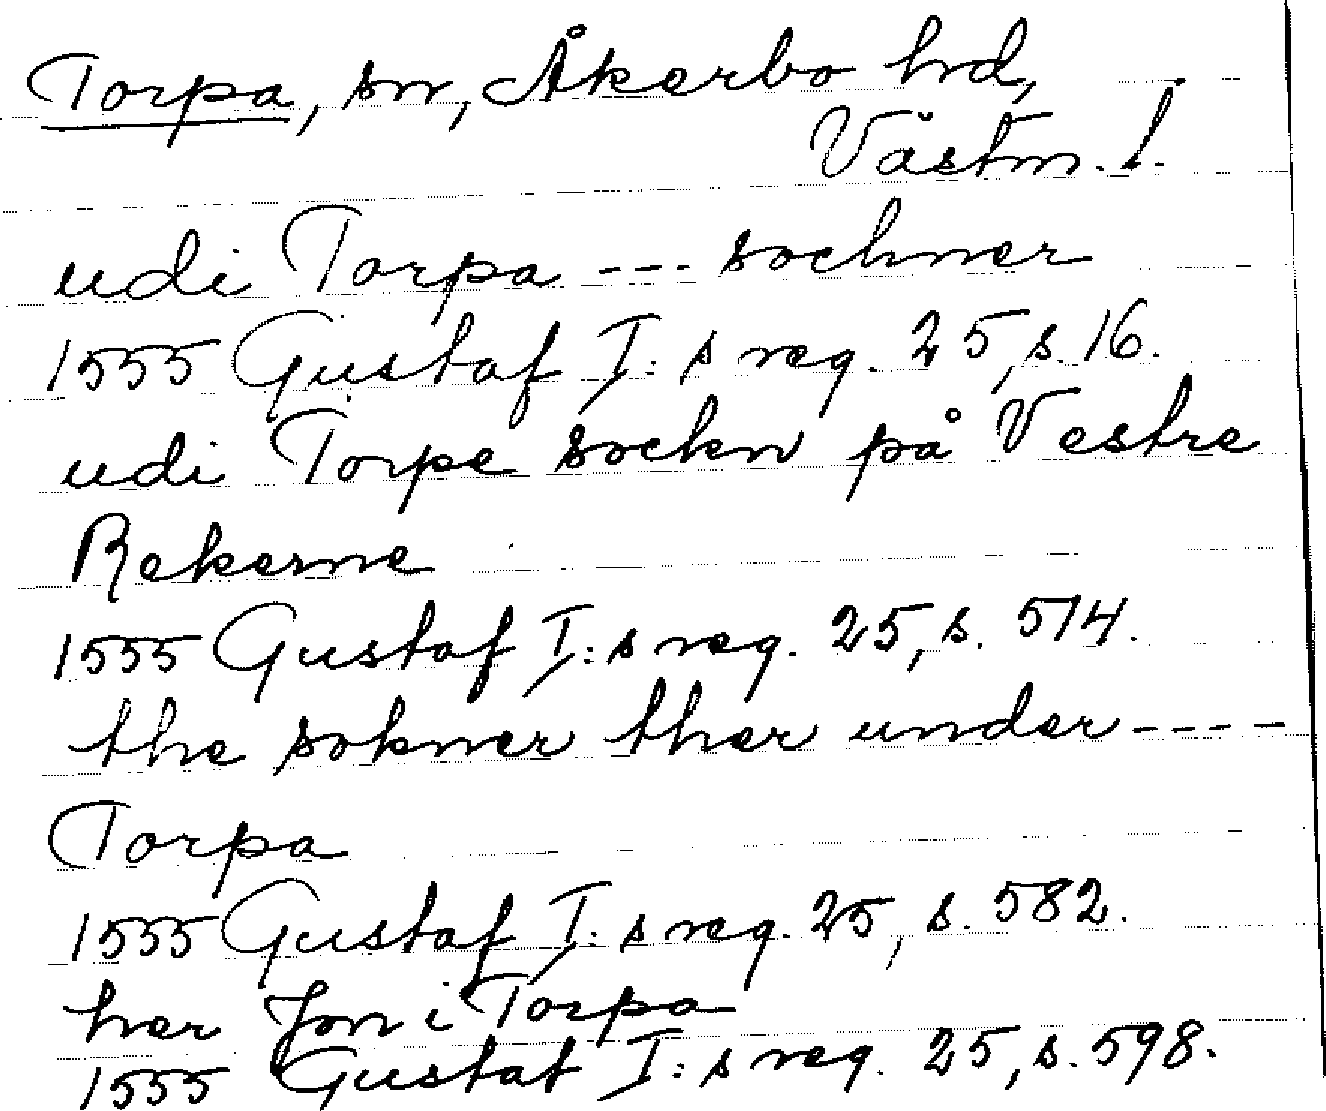 Torpa, sn, Åkerbo hd,
Västm. l.
udi Torpa --- sochner
1555 Gustaf I:s reg. 25, s. 16.
udi Torpe sockn på Vestre
Rekerne
1555 Gustaf I:s reg. 25, s. 514.
the sokner ther under ----
Torpa
1555 Gustaf I:s reg. 25, s. 582.
her Jon i Torpa
1555 Gustaf I:s reg. 25, s. 598.